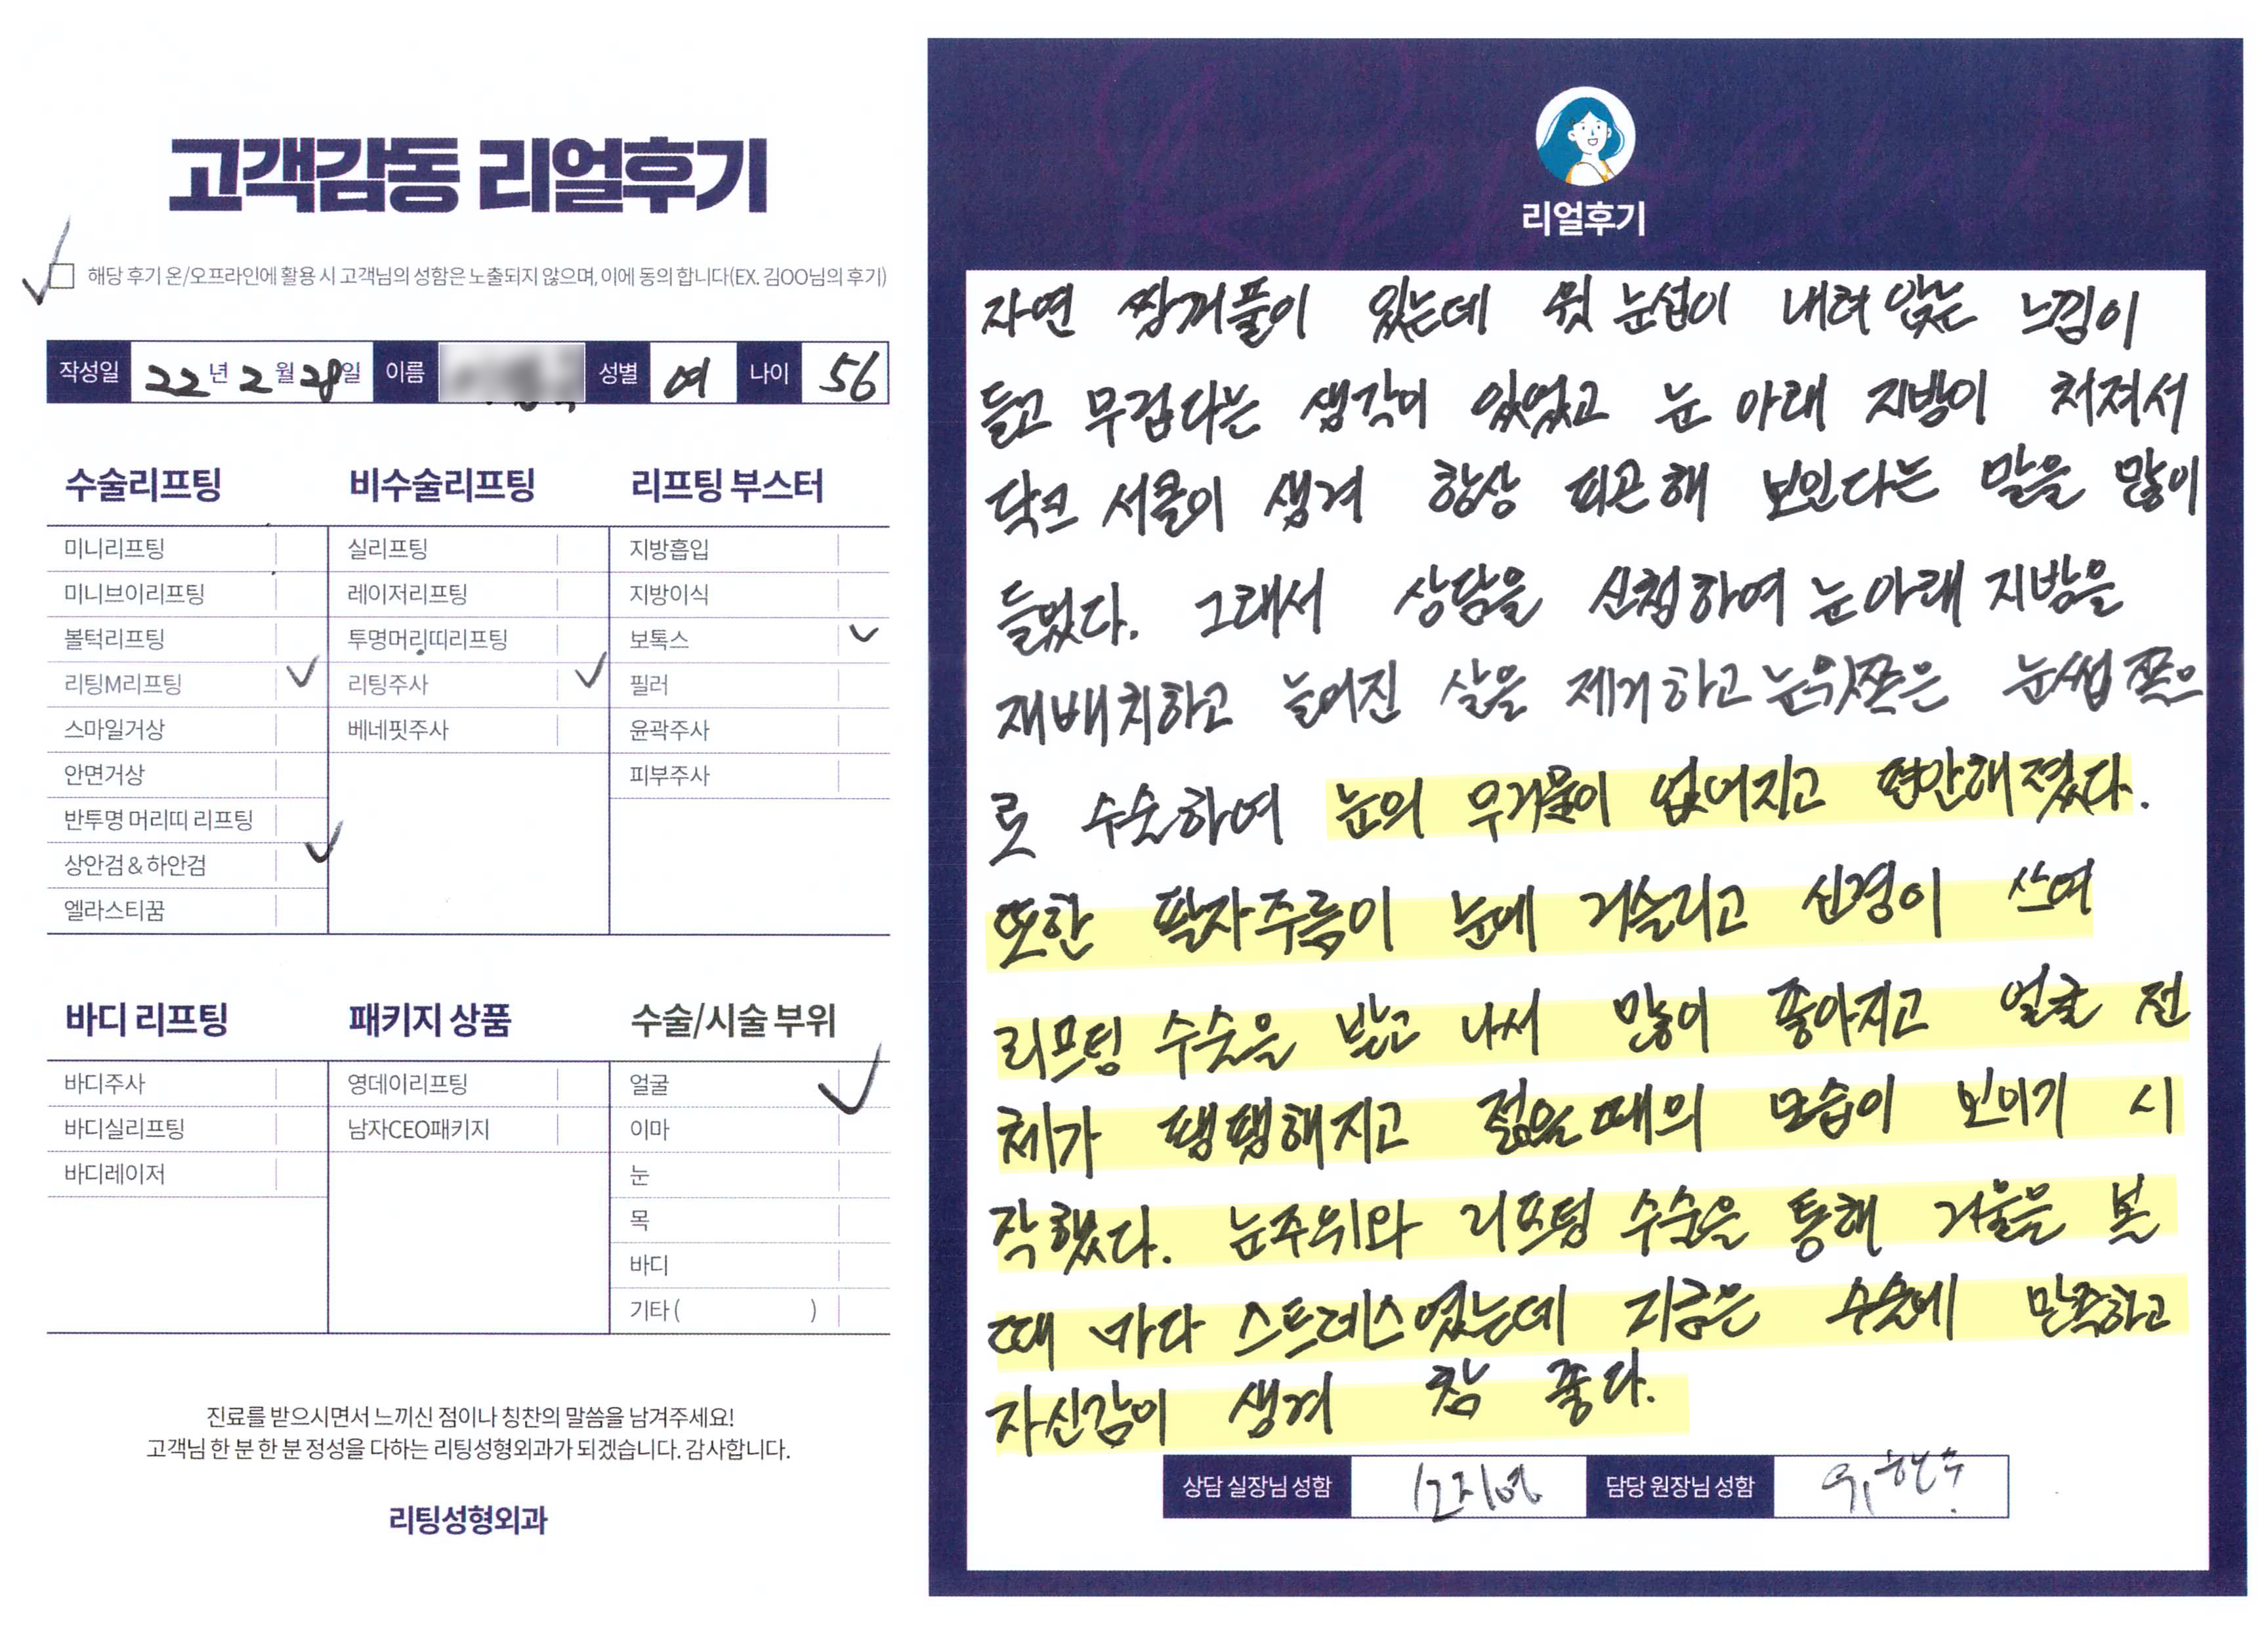 고객감동 리얼후기
해당 후기 온/오프라인에 활용 시 고객님의 성함은 노출되지 않으며, 이에 동의 합니다(EX. 김OO님의 후기)
작성일 22년 2월 28일 이름 성별 여 나이 56
수술리프팅
미니리프팅
미니브이리프팅
볼턱리프팅
리팅M리프팅
스마일거상
안면거상
반투명 머리띠 리프팅
상안검 & 하안검
엘라스티꿈
비수술리프팅
실리프팅
레이저리프팅
투명머리띠리프팅
리팅주사
베네핏주사
리프팅 부스터
지방흡입
지방이식
보톡스
필러
윤곽주사
피부주사
바디 리프팅
바디주사
바디실리프팅
바디레이저
패키지 상품
영데이리프팅
남자CEO패키지
수술/시술 부위
얼굴
이마
눈
목
바디
기타 ( )
진료를 받으시면서 느끼신 점이나 칭찬의 말씀을 남겨주세요!
고객님 한 분 한 분 정성을 다하는 리팅성형외과가 되겠습니다. 감사합니다.
리팅성형외과
리얼후기
자연 쌍꺼풀이 있는데 윗 눈섭이 내려 앉는 느낌이
들고 무겁다는 생각이 있었고 눈 아래 지방이 처져서
닥크 서클이 생겨 항상 피곤해 보인다는 말을 많이
들었다. 그래서 상담을 신청하여 눈아래 지방을
재배치하고 늘어진 살을 제거하고 눈윗쪽은 눈썹 쪽으
로 수술하여 눈의 무거움이 없어지고 편안해졌다.
또한 팔자주름이 눈에 거슬리고 신경이 쓰여
리프팅 수술을 받고 나서 많이 좋아지고 얼굴 전
체가 땡땡해지고 젊을때의 모습이 보이기 시
작했다. 눈주위와 리프팅 수술을 통해 거울을 볼
때 마다 스트레스였는데 지금은 수술에 만족하고
자신감이 생겨 참 좋다.
상담 실장님 성함 담당 원장님 성함